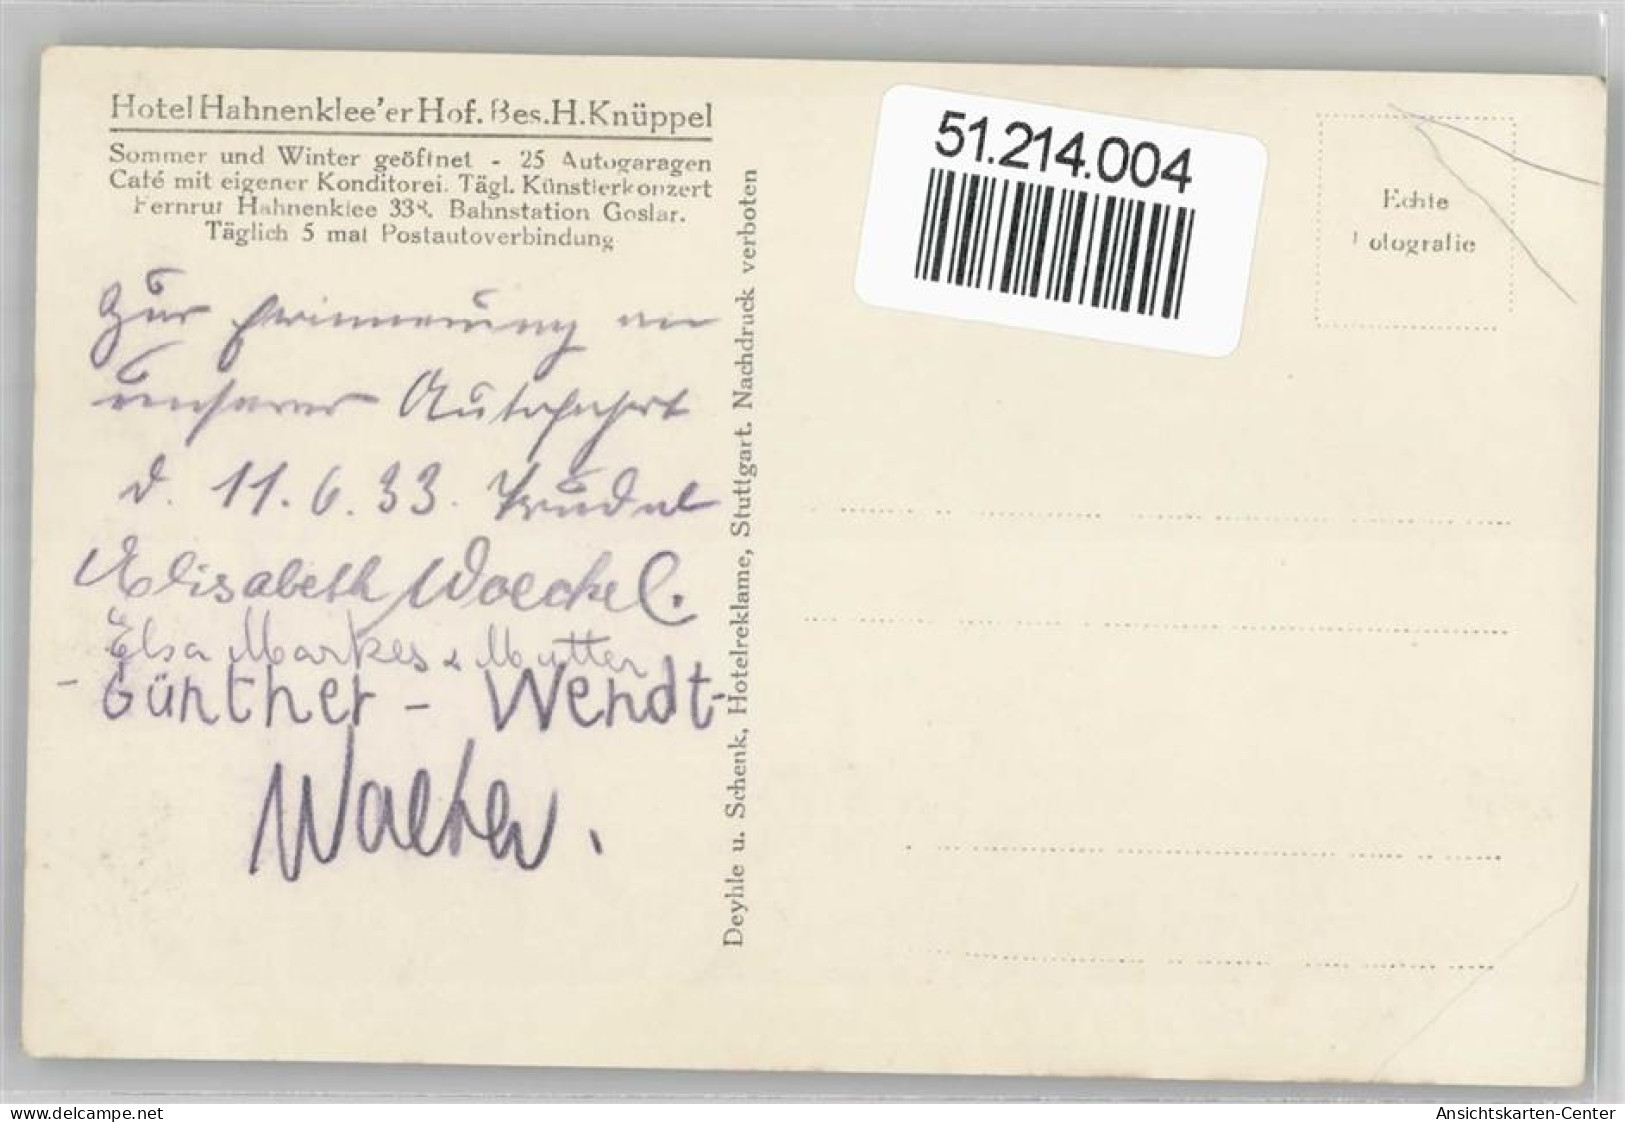 Hotel Hahnenklee'er Hof. Bes. H. Knüppel
Sommer und Winter geöffnet - 25 Autogaragen
Café mit eigener Konditorei. Tägl. Künstlerkonzert
Fernruf Hahnenklee 338. Bahnstation Goslar.
Täglich 5 mal Postautoverbindung
Zur Erinnerung an
unserer Autofahrt
d. 11.6.33. Trudel
Elisabeth Woeckel.
Elsa Markes & Mutter
- Günther - Wendt -
Walter.
Deyhle u. Schenk, Hotelreklame, Stuttgart. Nachdruck verboten
51.214.004
Echte
Fotografie
www.delcampe.net
Ansichtskarten-Center